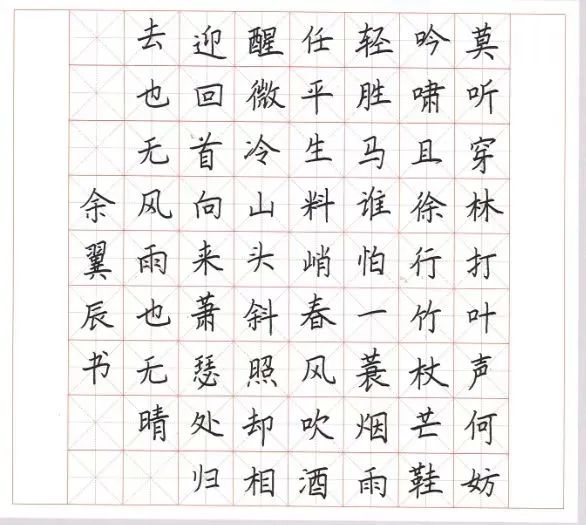 莫听穿林打叶声何妨
吟啸且徐行竹杖芒鞋
轻胜马谁怕一蓑烟雨
任平生料峭春风吹酒
醒微冷山头斜照却相
迎回首向来萧瑟处归
去也无风雨也无晴
余翼辰书